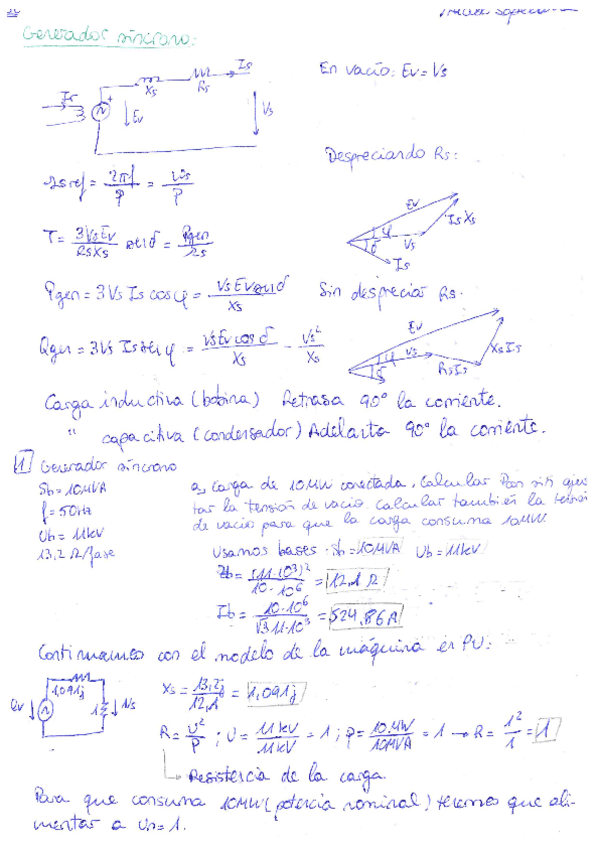 Generador síncrono:
Is
Xs Rs
Is
Ev
Vs
En vacío: Ev = Vs
Despreciando Rs:
Ωsref = 2πf/P = ωs/P
Ev
IsXs
φ
δ
Vs
Is
T = 3VsEv/ΩsXs senδ = Pgen/Ωs
Pgen = 3Vs Is cosφ = VsEv senδ/Xs
Sin despreciar Rs:
Ev
XsIs
φ
Vs
RsIs
δ
Qgen = 3Vs Is sen φ = VsEv cosδ/Xs - Vs²/Xs
Carga inductiva (bobina) Retrasa 90° la corriente.
" capacitiva (condensador) Adelanta 90° la corriente.
1 Generador síncrono
Sb = 10MVA
f = 50Hz
Ub = 11kV
13,2 Ω/fase
a, Carga de 10MW conectada. Calcular Pgen sin
tar la tensión de vacío. Calcular también la
de vacío para que la carga consuma 10MW.
Usamos bases: Sb = 10MVA Ub = 11kV
Zb = (11·10³)²/10·10⁶ = 12,1 Ω
Ib = 10·10⁶/√3 11·10³ = 524,86A
Continuamos con el modelo de la máquina en PU:
1,091j
Ev
1
Vs
Xs = 13,2j/12,1 = 1,091j
R = U²/P ; U = 11kV/11kV = 1 ; P = 10MW/10MVA = 1 → R = 1²/1 = 1
Resistencia de la carga.
Para que consuma 10MW (potencia nominal) tenemos que ali-
mentar a Un = 1.